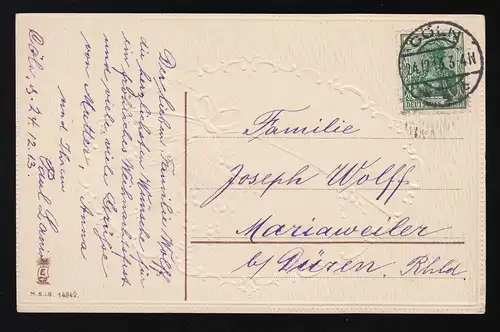 Der lieben Familie Wolff
die herzlichsten Wünsche für
ein frohes Weihnachtsfest
und viele, viele Grüße
von Mutter, Anna
und Ihrem
Paul
Cöln, d. 24.12.13.
CÖLN
24.12.13. 3-4N
Familie
Joseph Wolff
Mariaweiler
b/ Düren, Rhld.
M.S.i.B. 14842.